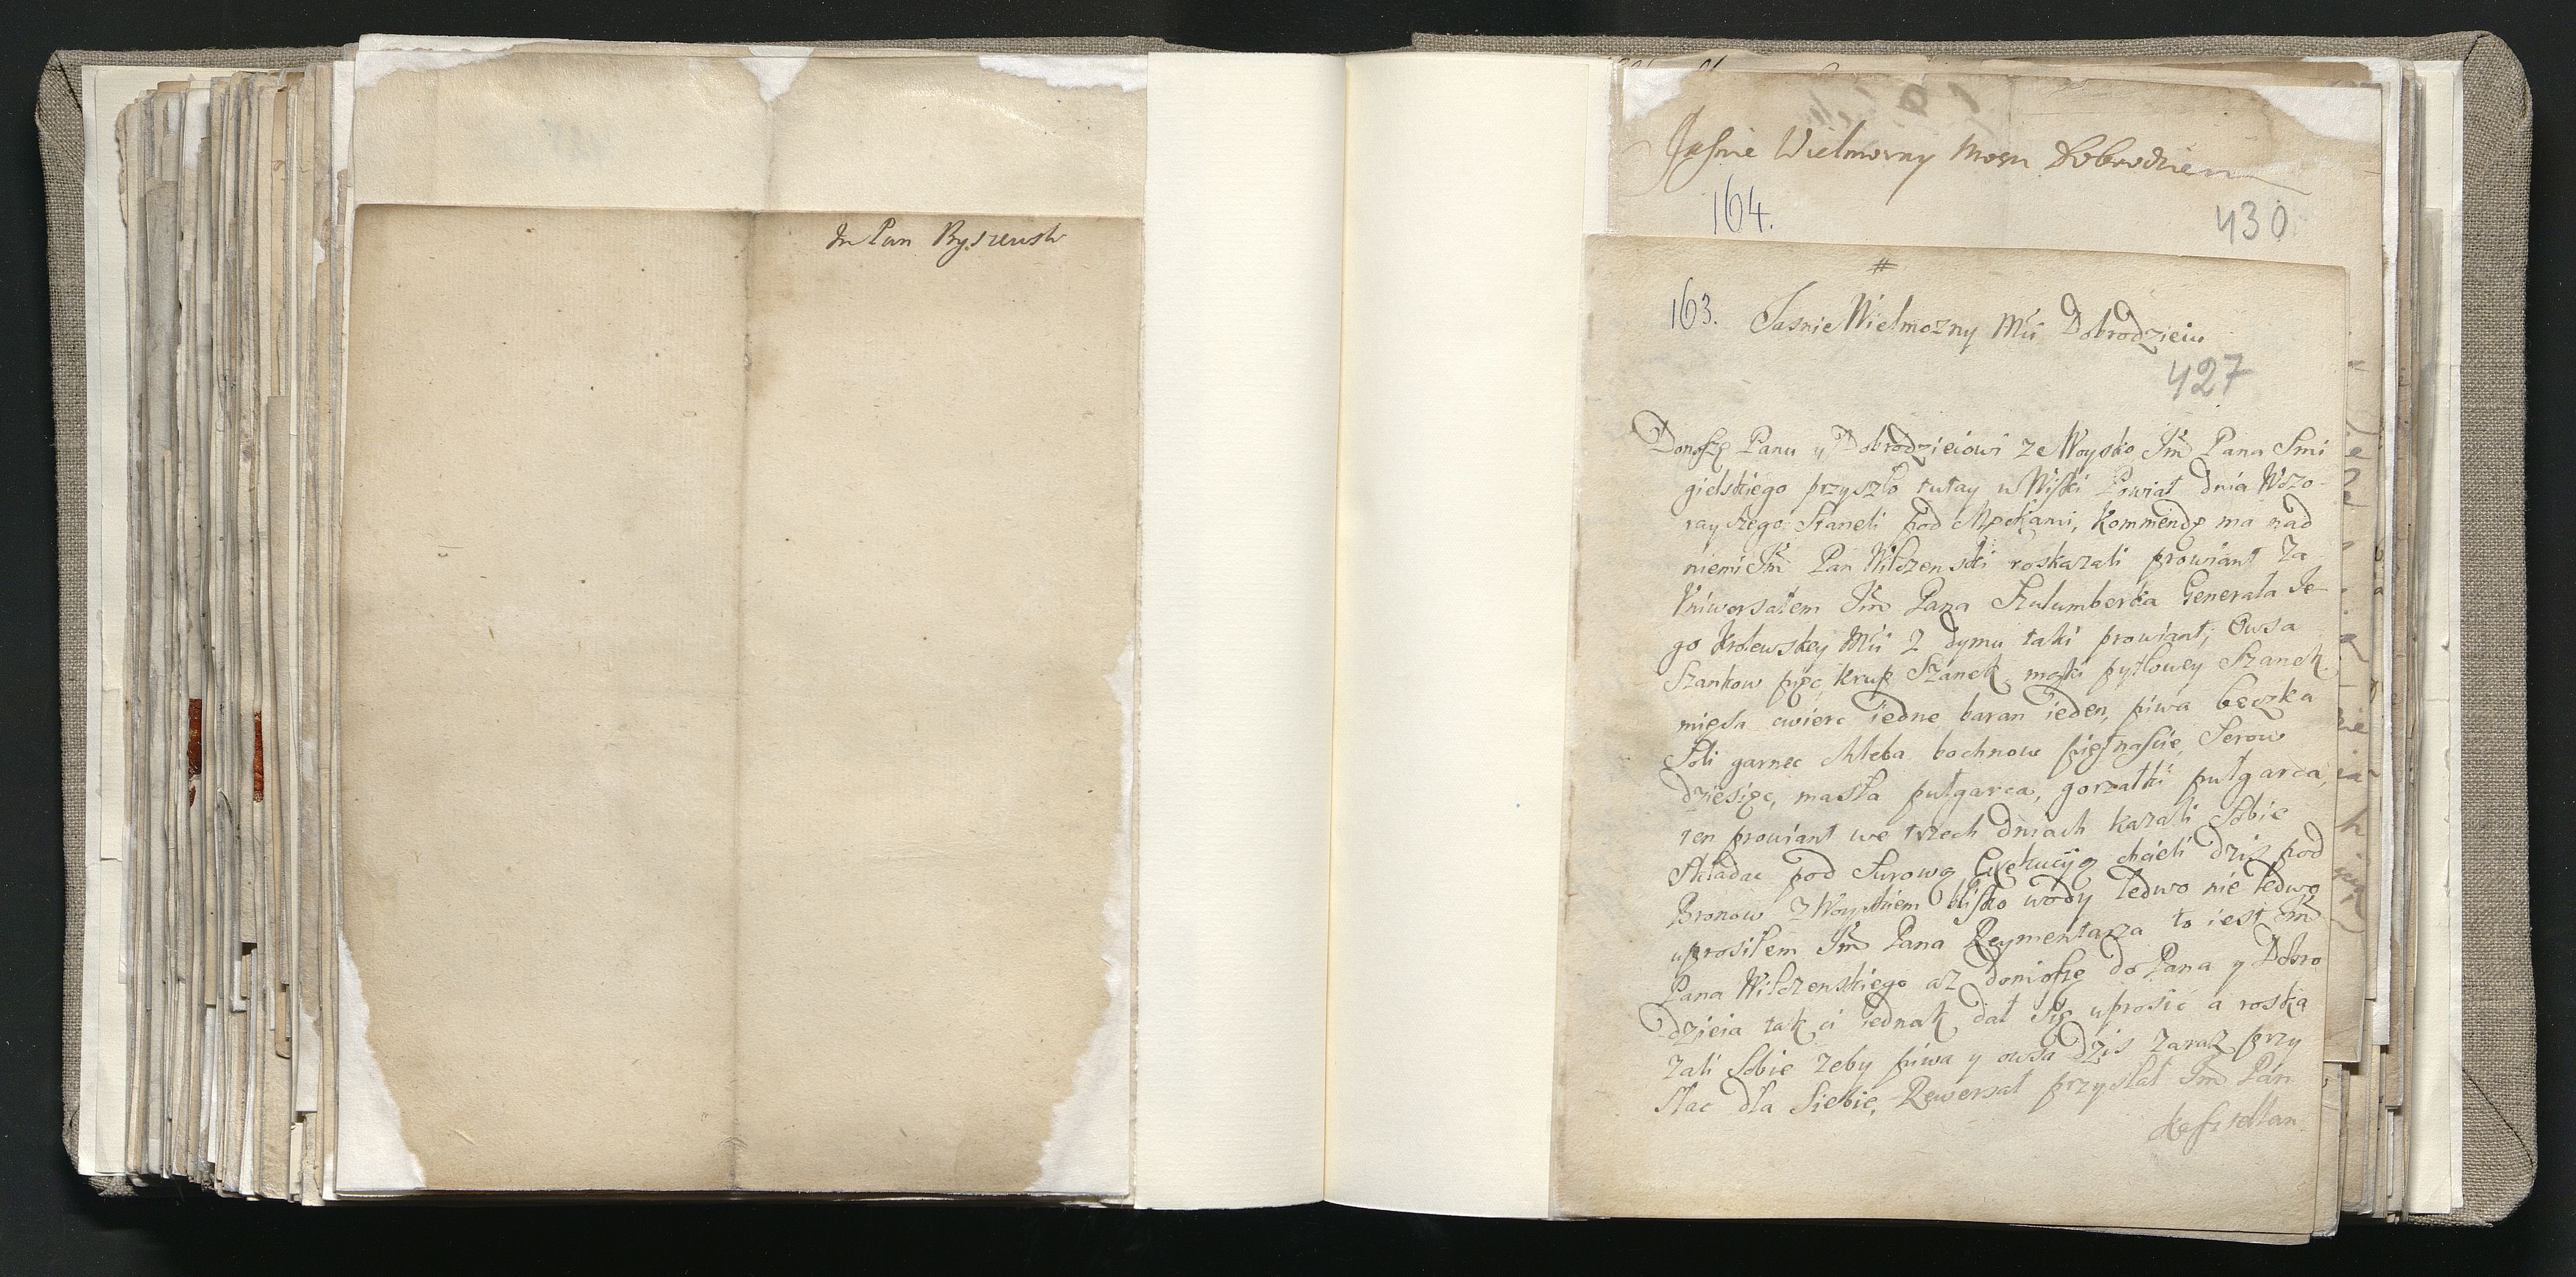 Im Pan Ryszewsk
Jasnie Wielmozny Mosci Dobrodzieiu
164.
430
#
163. Jasnie Wielmozny Mci Dobrodzieiu
427
Donoszę Panu y Dobrodzieiowi ze Woysko Im Pana Smi
gielskiego przyszło tutay w Powiat dnia Wczo-
rayszego Staneli pod Mąckami, Kommendę ma nad
niemi Im Pan Wilczenski roskazali prowiant za
Vniwersałem Im Pana Sztulumberka Generala Je-
go Krolewskey Mci z dymu taki prowiant, Owsa
Szankow pięc, krup Szanek, mąki pytlowey Szanek
mięsa cwierc iedne baran ieden, piwa beczka
Soli garnec chleba bochnow piętnascie, Serow
dziesięc, masła pułgarca, gorzałki pułgarca,
ten prowiant we trzech dniach kazali Sobie
składac pod Surową Exekucyią chcieli dzis pod
Bronow z Woyskiem blisko wody ledwo nie ledwo
uprosiłem Im Pana Reymentarza to iest Im
Pana Wilczenskiego az doniosę do Pana y Dobro
dzieia tak ci iednak dał się uprosic a roska
zali Sobie zeby piwa y owsa dzis zaraz przy
słac dla Siebie, Rewersał przysłał Im Pan
Kasztellan